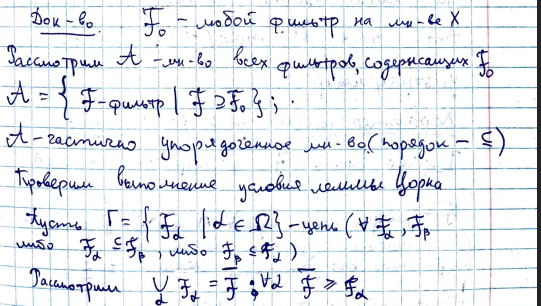 Док-во. F₀ - любой фильтр на мн-ве X
Рассмотрим A - мн-во всех фильтров, содержащих F₀
A = { F-фильтр | F ⊇ F₀ };
A - частично упорядоченное мн-во (порядок - ⊆)
Проверим выполнение условия леммы Цорна
Пусть Γ = { F_α | α ∈ Ω } - цепь ( ∀ F_α, F_β
либо F_α ⊆ F_β, либо F_β ⊆ F_α )
Рассмотрим ⋃_α F_α = F̅ ; ∀α F̅ ⩾ F_α